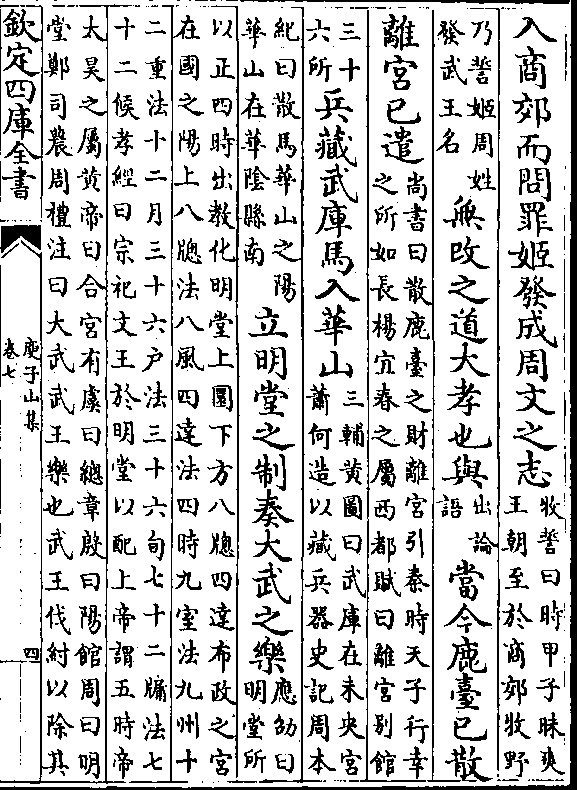 入商郊而問罪姬發成周文之志牧誓曰時甲子昧爽
王朝至於商郊牧野
乃誓姬周姓
發武王名
無改之道大孝也與出論
語
當今鹿臺已散
離宮已遣尚書曰散鹿臺之財離宮引秦時天子行幸
之所如長楊宜春之屬西都賦曰離宮别館
三十
六所
兵藏武庫馬入華山三輔黄圖曰武庫在未央宮
蕭何造以藏兵器史記周本
紀曰散馬華山之陽
華山在華陰縣南
立明堂之制奏大武之樂應劭曰
明堂所
以正四時出教化明堂上圜下方八牕四達布政之宮
在國之陽上八牕法八風四達法四時九室法九州十
二重法十二月三十六户法三十六旬七十二牖法七
十二候孝經曰宗祀文王於明堂以配上帝謂五時帝
太昊之屬黄帝曰合宮有虞曰總章殷曰陽館周曰明
堂鄭司農周禮注曰大武武王樂也武王伐紂以除其
欽定四庫全書
庾子山集
卷七
四